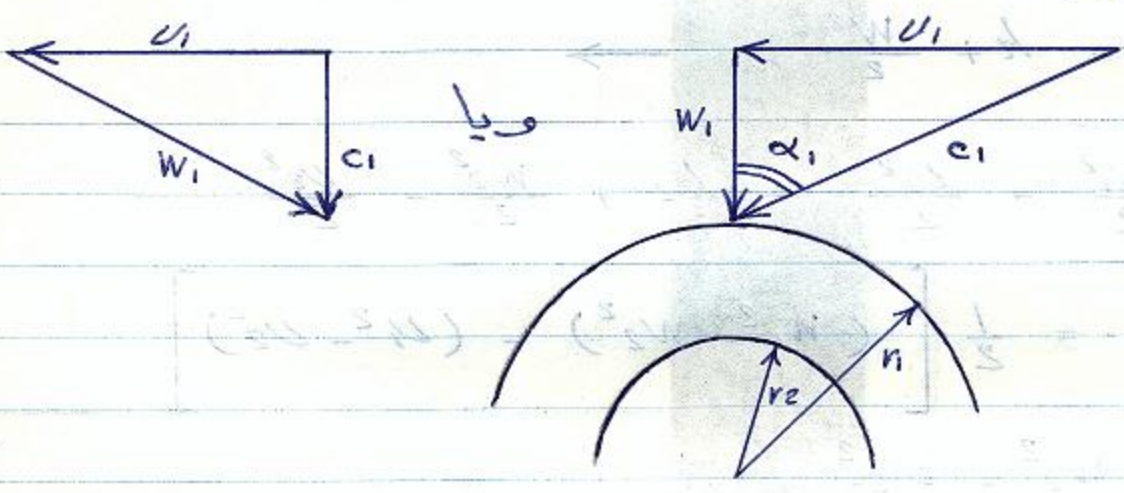 U₁ U₁
W₁ C₁ ویا W₁ α₁ C₁
r₂ r₁